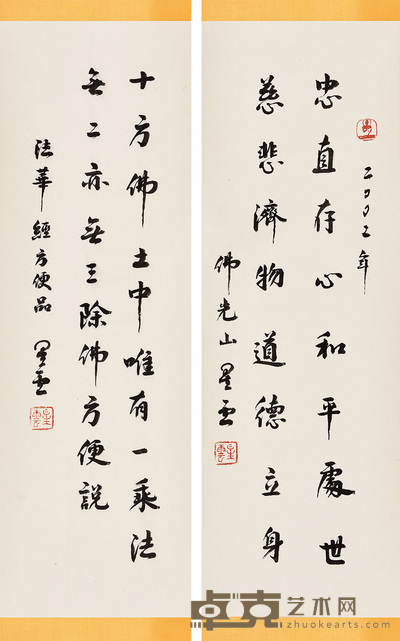 二〇〇二年
忠直存心和平處世
慈悲濟物道德立身
佛光山星雲
星雲
十方佛土中唯有一乘法
無二亦無三除佛方便説
法華經方便品 星雲
星雲
卓克艺术网
zhuokearts.com